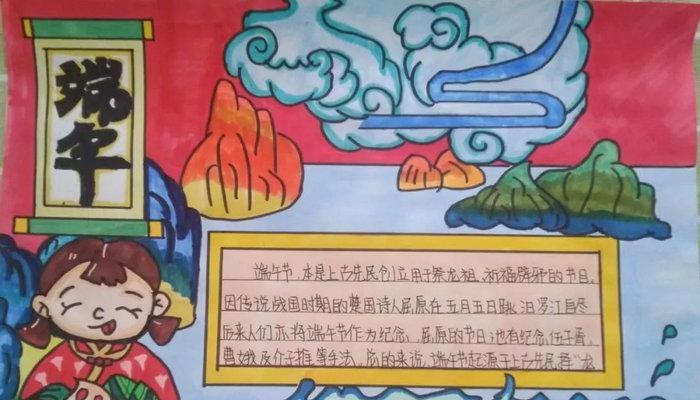 端午
端午节,本是上古先民创立用于祭龙祖、祈福辟邪的节日。
因传说战国时期的楚国诗人屈原在五月五日跳汨罗江自尽
后来人们亦将端午节作为纪念屈原的节日;也有纪念伍子胥,
曹娥及介子推等手法。总的来说,端午节起源于上古先民择“龙